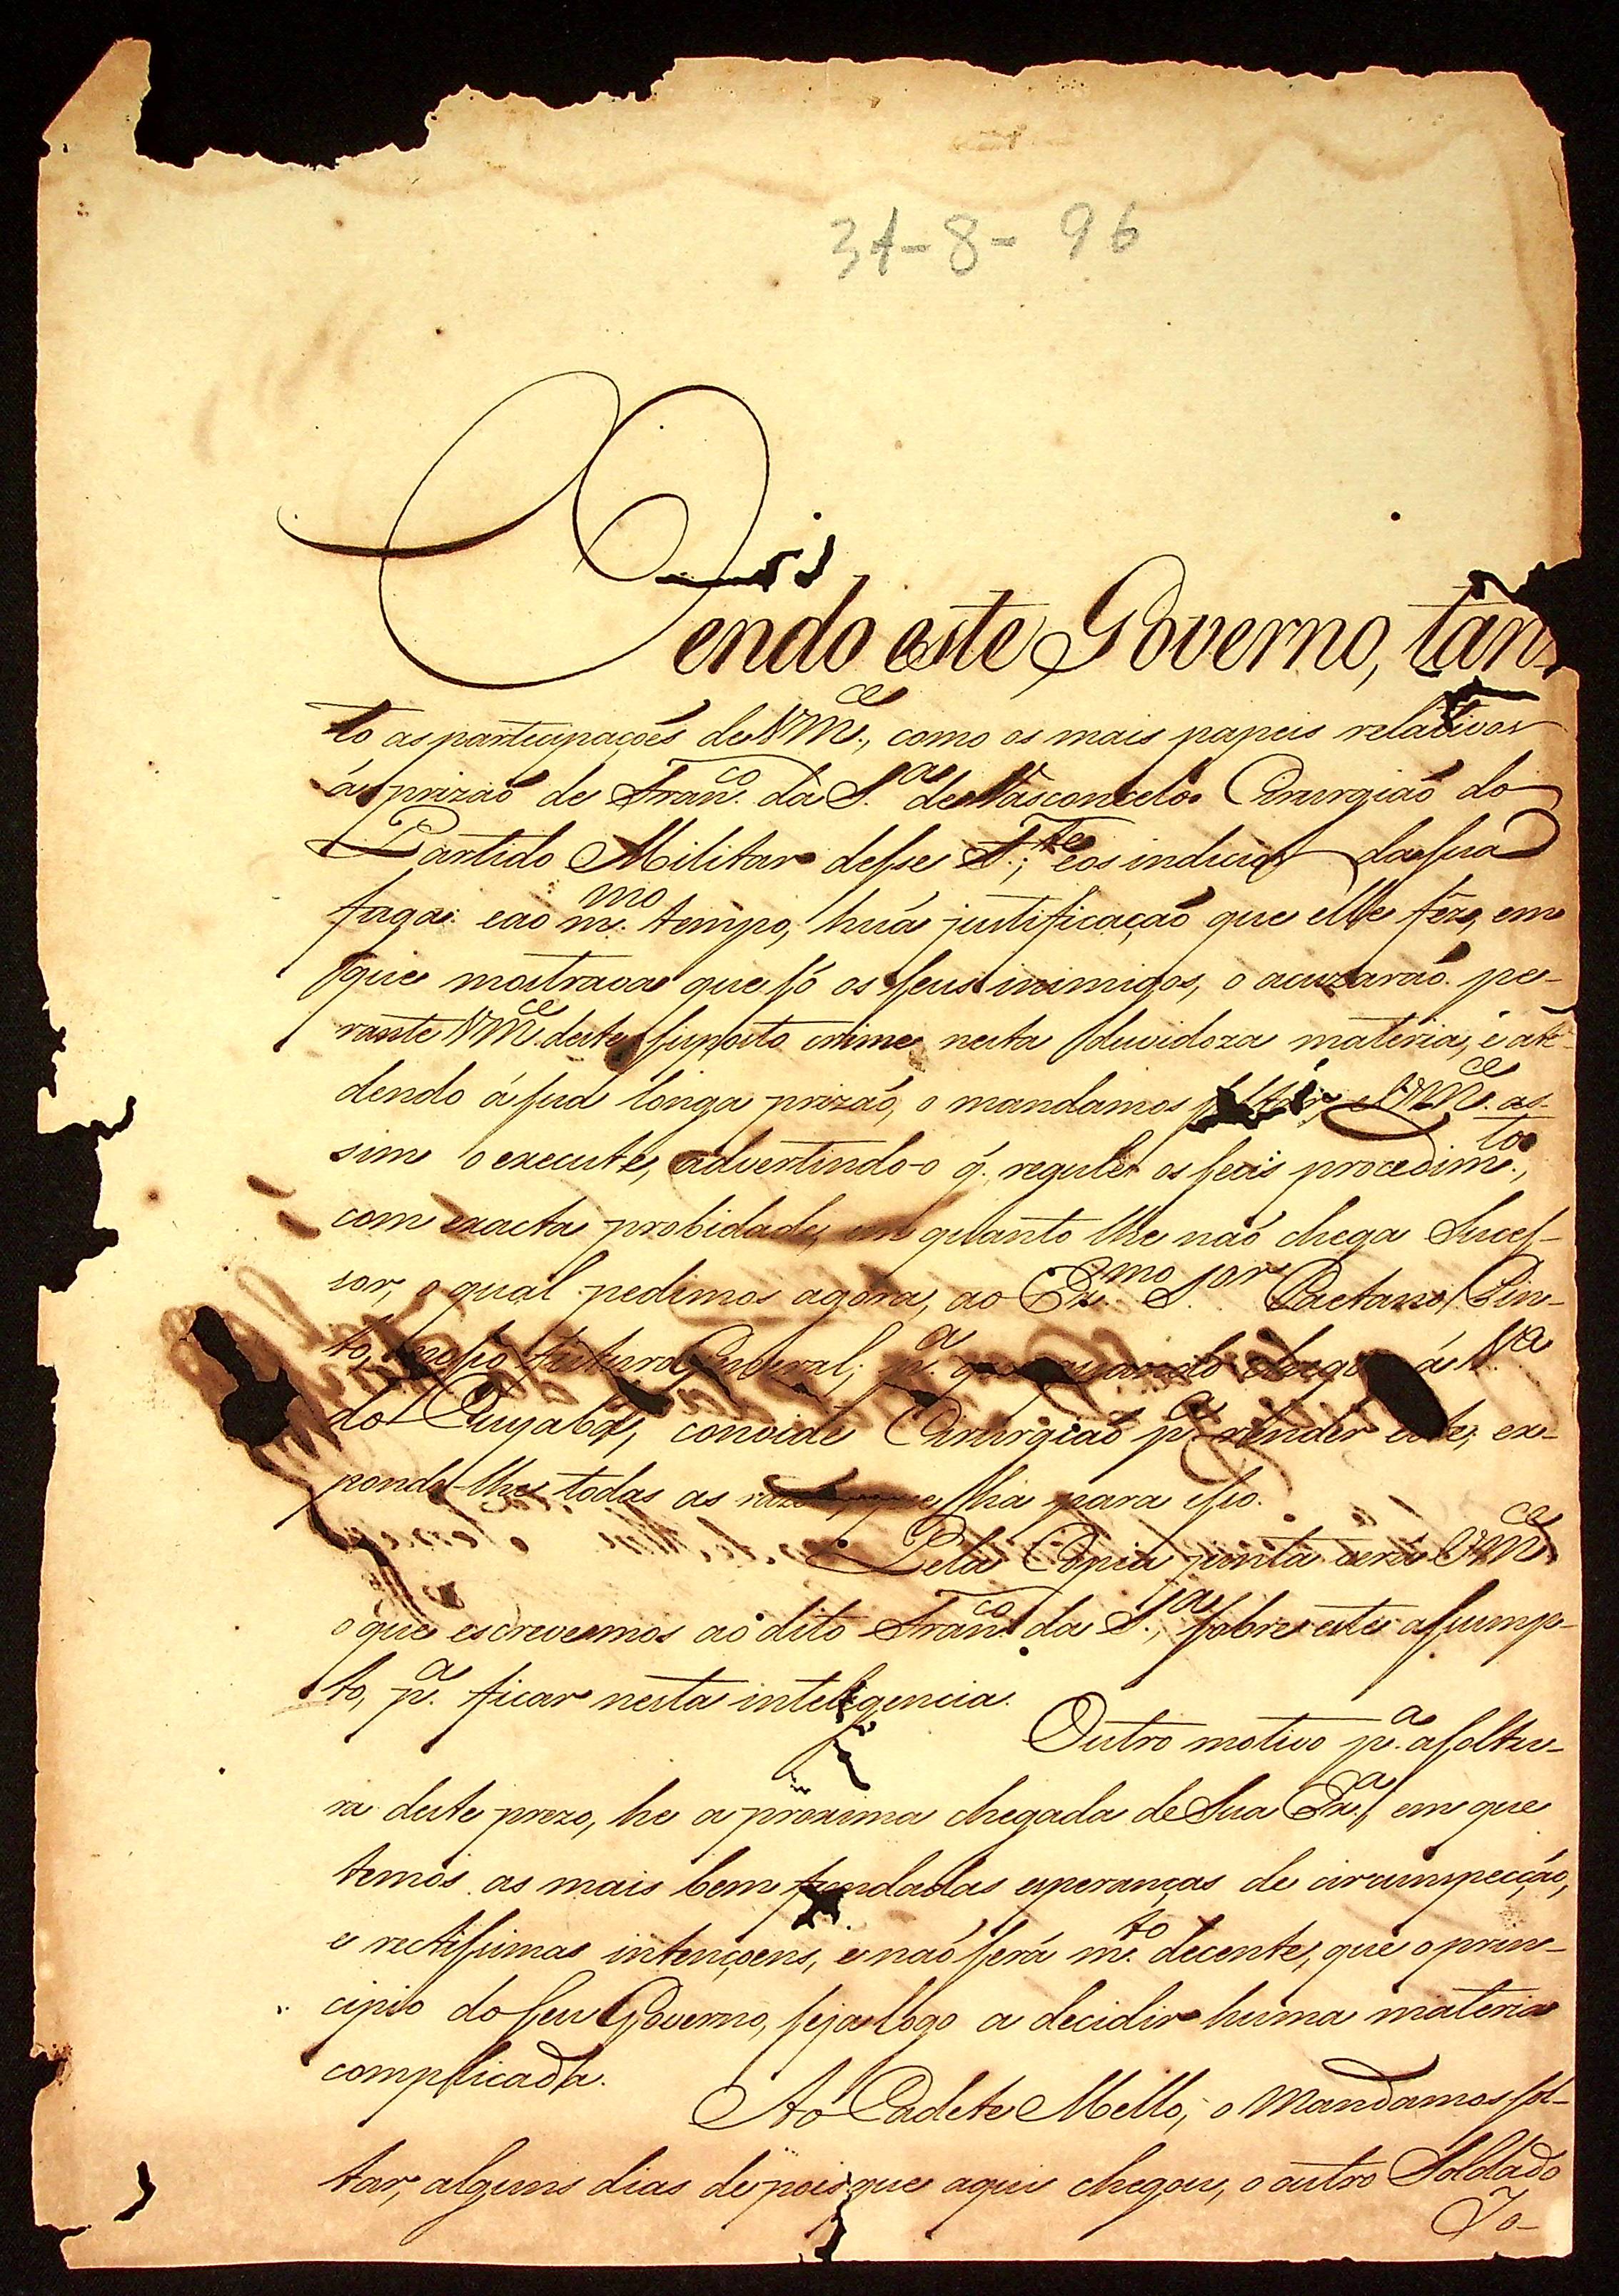 31-8-96
Vendo este Governo, tan-
to as participações de VM.ce, como os mais papeis relativos
á prizaõ de Fran.co da S.a de Vasconcelos Cirurgiaõ do
Partido Militar desse F.te; e os indicios da sua
fuga: e ao m.mo tempo, huã justificaçaõ que elle fez, em
que mostrava que só os seus inimigos, o acuzaraõ pe-
rante VM.ce deste suposto crime nesta duvidoza materia, e atẽ-
dendo á sua longa prizaõ, o mandamos soltar, e VM.ce as-
sim o execute, advertindo-o q. regule os seus procedim.tos,
com exacta probidade, em quanto lhe naõ chega Sucef-
sor, o qual pedimos agora, ao Ex.mo S.or Caetano Pin-
to, nosso futuro General; p.a que quando chegar á V.a
do Cuyabá, convide Cirurgiaõ p.a render este, ex-
pondo-lhe todas as razoens que ha para isso.
Pela Copia junta verá VM.ce
o que escrevemos ao dito Fran.co da S.a, sobre este assump-
to, p.a ficar nesta inteligencia.
Outro motivo p.a a soltu-
ra deste prezo, he a proxima chegada de Sua Ex.a, em que
temos as mais bem fundadas esperanças de circumspecçaõ,
e rectissimas intençoens, e naõ será m.to decente, que o prin-
cipio do seu Governo, seja logo a decidir huma materia
complicada.
Ao Cadete Mello, o mandamos sol-
tar, alguns dias depois que aqui chegou, o outro Soldado
Jo-